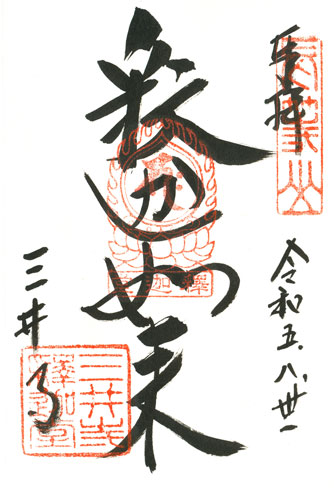 奉拝
長等山
令和五.八.卅一
釈迦如来
三井寺
三井寺
釋迦堂